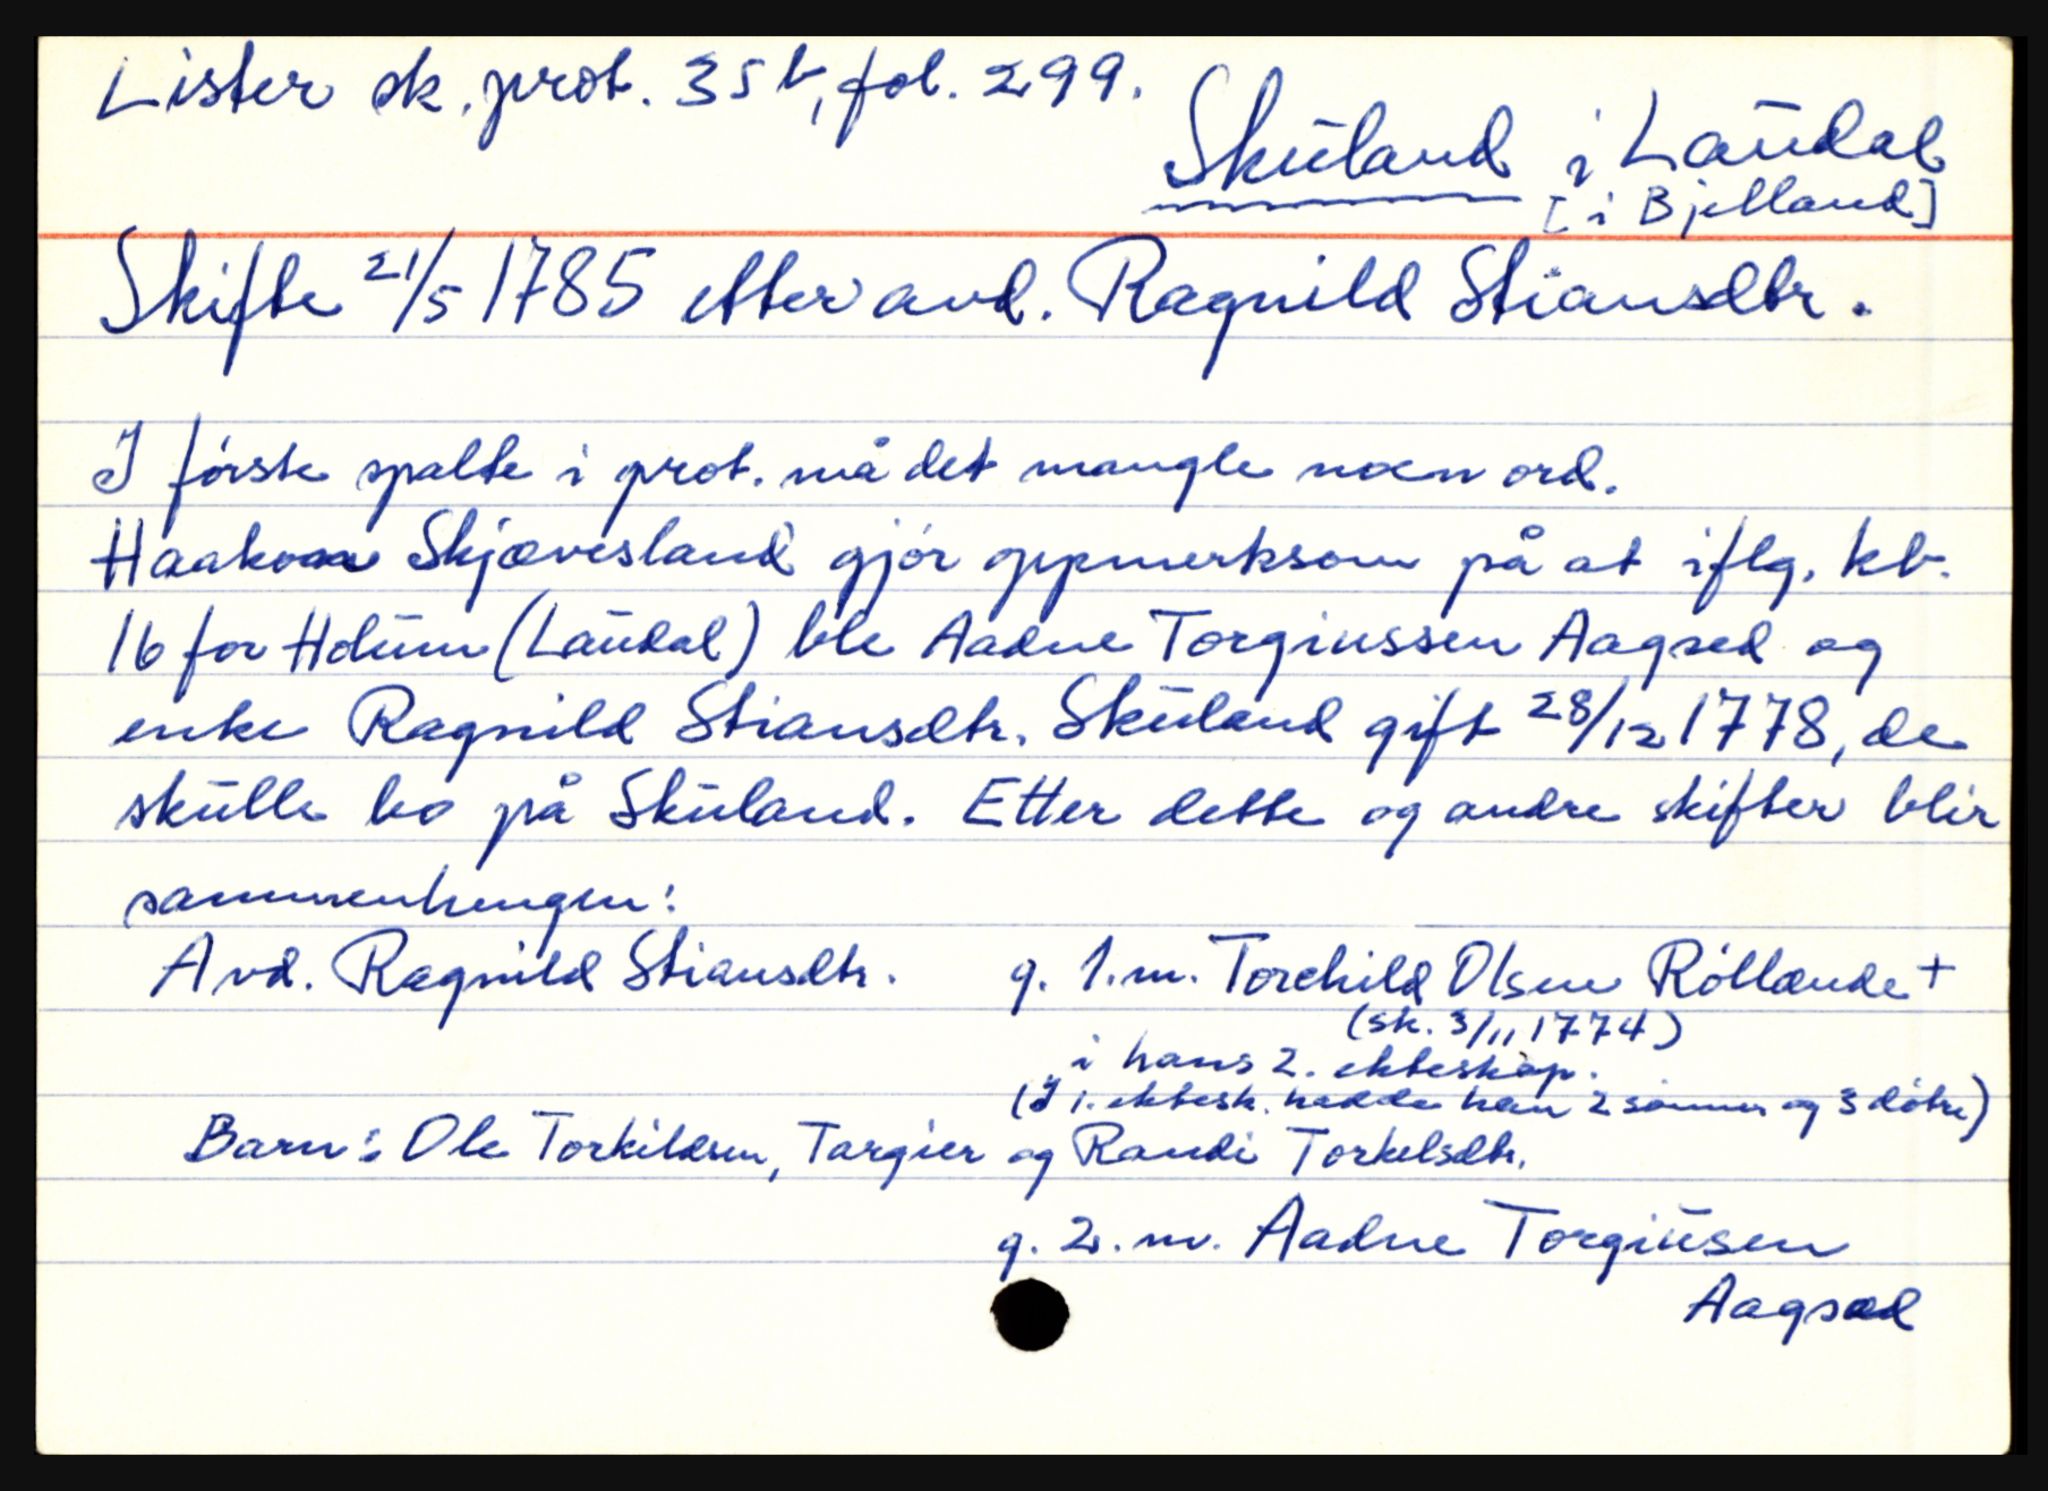 Lister sk. prot. 35 b, fol. 299.
Skuland i Laudal
[i Bjelland]
Skifte 21/5 1785 etter avd. Ragnild Stiansdtr.
I første spalte i prot. må det mangle noen ord.
Haakon Skjævesland gjør oppmerksom på at iflg. kb.
16 for Holum (Laudal) ble Aadne Torgiussen Aagsed og
enke Ragnild Stiansdtr. Skuland gift 28/12 1778, de
skulle bo på Skuland. Etter dette og andre skifter blir
sammenhengen:
Avd. Ragnild Stiansdtr. g. 1. m. Torchild Olsen Röllande +
(sk. 3/11 1774)
i hans 2. ekteskap.
(I 1. ektesk. hadde han 2 sønner og 3 døtre)
Barn: Ole Torkildsen, Targier og Randi Torkelsdtr.
g. 2. m. Aadne Torgiusen
Aagsæd